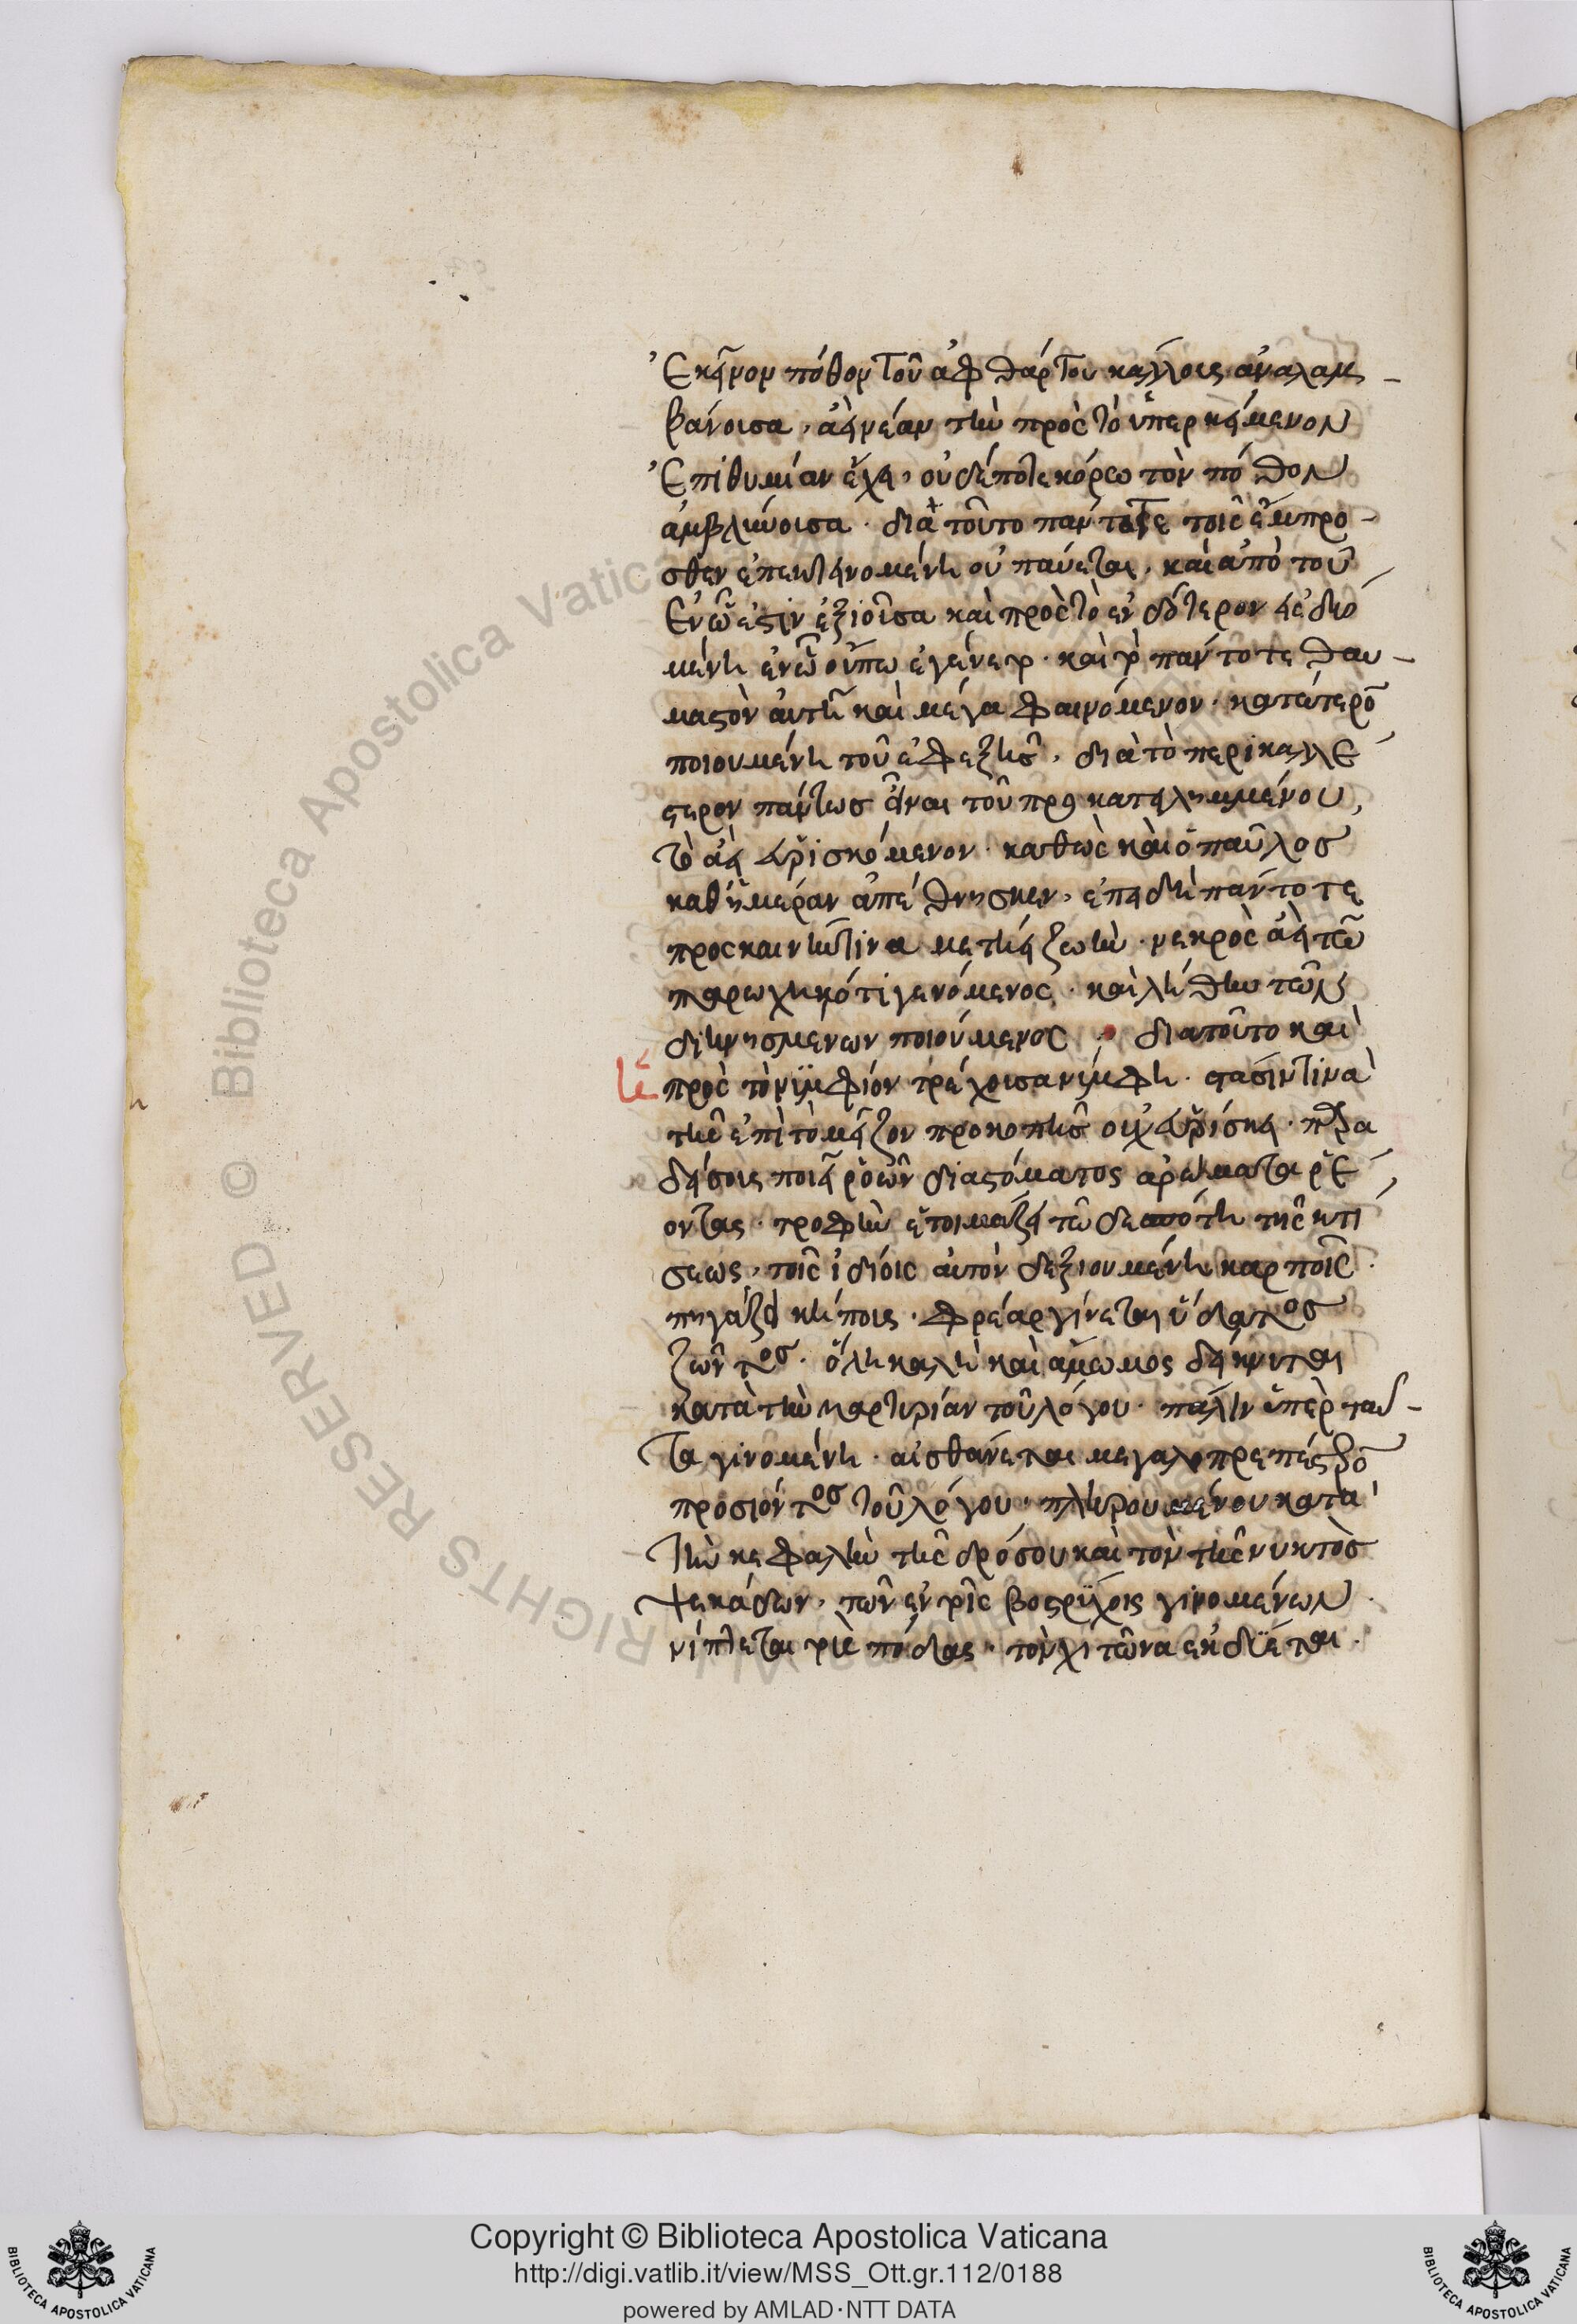 Ἐκεῖνον πόθον τοῦ ἀφθάρτου κάλλους ἀναλαμ-
βάνουσα, ἀεὶ νέαν τὴν πρὸς τὸ ὑπερκείμενον
Ἐπιθυμίαν ἔχει, οὐδέποτε κόρῳ τὸν πόθον
ἀμβλύνουσα· διὰ τοῦτο πάντοτε τοῖς ἔμπρο-
σθεν ἐπεκτεινομένη οὐ παύεται, καὶ ἀπὸ τοῦ
ἐν ᾧ ἐστὶν ἐξιοῦσα καὶ πρὸς τὸ ἐνδότερον εἰσδυο
μένη ἐν ᾧ οὔπω ἐγένετο· καὶ τὸ πάντοτε θαυ-
μαστὸν αὐτῇ καὶ μέγα φαινόμενον· κατώτερον
ποιουμένη τοῦ ἐφεξῆς, διὰ τὸ περικαλλέ
στερον πάντως εἶναι τοῦ προκατειλημμένου,
τὸ ἀεὶ εὑρισκόμενον· καθὼς καὶ ὁ παῦλος
καθ' ἡμέραν ἀπέθνησκεν, ἐπειδὴ πάντοτε
προς καινήν τινα μετῄει ζωὴν· νεκρὸς ἀεὶ τῷ
παρωχηκότι γενόμενος· καὶ λήθην τῶν
διηνυσμένων ποιούμενος · διατοῦτο καὶ
πρὸς τὸν νυμφίον τρέχουσα νύμφη· στάσίν τινα
τῆς ἐπὶ τὸ μεῖζον προκοπῆς οὐχ εὑρίσκει· παρα
δείσους ποιεῖ ῥοῶν διαστόματος ἀρώματα ῥέ
οντας· τροφὴν ἑτοιμάζει τῷ δεσπότῃ τῆς κτί
σεως, τοῖς ἰδίοις αὐτὸν δεξιουμένη καρποῖς·
πηγάζει κήπους· φρέαρ γίνεται ὕδατος
ζῶντος· ὅλη καλὴ καὶ ἄμωμος δείκνυται
κατὰ τὴν μαρτυρίαν τοῦ λόγου· πάλιν ὑπὲρ ταῦ-
τα γινομένη· αἰσθάνεται μεγαλοπρεπέστερον
προσιόντος τοῦ λόγου· πληρουμένου κατὰ
τὴν κεφαλὴν τῆς δρόσου καὶ τὸν τῆς νυκτὸς
ψεκάδων, τῶν ἐν τοῖς βοστρύχοις γινομένων·
νίπτεται τοὺς πόδας· τὸν χιτῶνα ἐκδύεται·
Copyright © Biblioteca Apostolica Vaticana
http://digi.vatlib.it/view/MSS_Ott.gr.112/0188
powered by AMLAD·NTT DATA